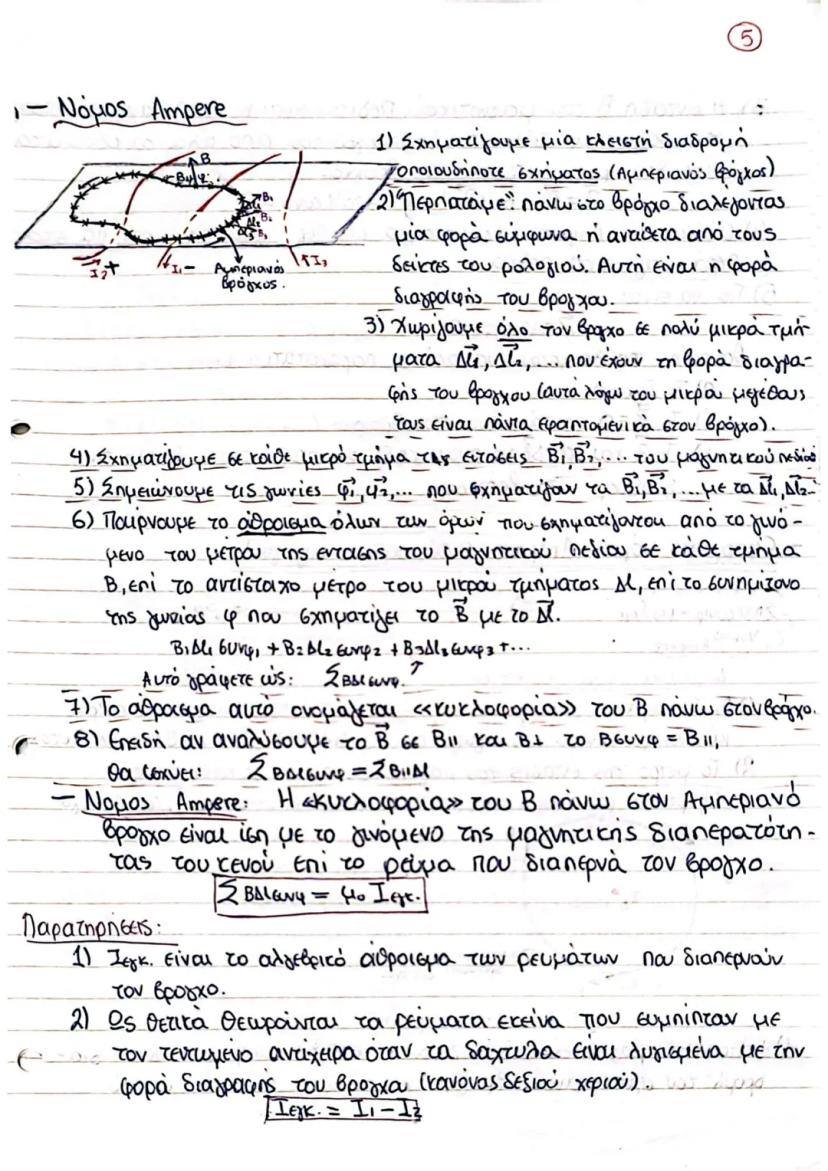 5
- Νόμος Ampere
1) Σχηματίζουμε μία κλειστή διαδρομή
οποιουδήποτε σχήματος (Αμπεριανός βρόχος)
2) "Περπατάμε" πάνω στο βρόγχο διαλέγοντας
μία φορά σύμφωνα ή αντίθετα από τους
δείκτες του ρολογιού. Αυτή είναι η φορά
διαγραφής του βρογχου.
B
B4 φ
B1
Δl1
B2
Δl2
B3
I2 +
I1 -
Αμπεριανός
βρόγχος.
I3
3) Χωρίζουμε όλο τον βρογχο σε πολύ μικρά τμή-
ματα Δl1, Δl2, ... που έχουν τη φορά διαγρα-
φής του βρογχου (αυτά λόγω του μικρού μεγέθους
τους είναι πάντα εφαπτομενικά στον βρόγχο).
4) Σχηματίζουμε σε κάθε μικρό τμήμα τις εντάσεις B1, B2, ... του μαγνητικού πεδίου
5) Σημειώνουμε τις γωνίες φ1, φ2, ... που σχηματίζουν τα B1, B2, ... με τα Δl1, Δl2..
6) Παίρνουμε το άθροισμα όλων των όρων που σχηματίζονται από το γινό-
μενο του μέτρου της έντασης του μαγνητικού πεδίου σε κάθε τμήμα
B, επί το αντίστοιχο μέτρο του μικρού τμήματος Δl, επί το συνημίτονο
της γωνίας φ που σχηματίζει το B με το Δl.
B1Δl1 συνφ1 + B2Δl2 συνφ2 + B3Δl3 συνφ3 + ...
Αυτό γράφετε ώς: ΣBΔlσυνφ.
7) Το άθροισμα αυτό ονομάζεται «κυκλοφορία» του B πάνω στον βρόγχο.
8) Επειδή αν αναλύσουμε το B σε B∥ και B⊥ το Bσυνφ = B∥,
θα ισχύει: ΣBΔlσυνφ = ΣB∥Δl
- Νομος Ampere: Η «κυκλοφορία» του B πάνω στον Αμπεριανό
βρογχο είναι ίση με το γινόμενο της μαγνητικής διαπερατότη-
τας του κενού επί το ρεύμα που διαπερνά τον βρογχο.
ΣBΔlσυνφ = μ0 Iεγκ.
Παρατηρήσεις:
1) Iεγκ. είναι το αλγεβρικό άθροισμα των ρευμάτων που διαπερνούν
τον βρογχο.
2) Ως θετικά θεωρούνται τα ρεύματα εκείνα που συμπίπτουν με
τον τεντωμένο αντίχειρα όταν τα δάχτυλα είναι λυγισμένα με την
φορά διαγραφής του βρογχου (κανόνας δεξιού χεριού).
Iεγκ. = I1 - I2